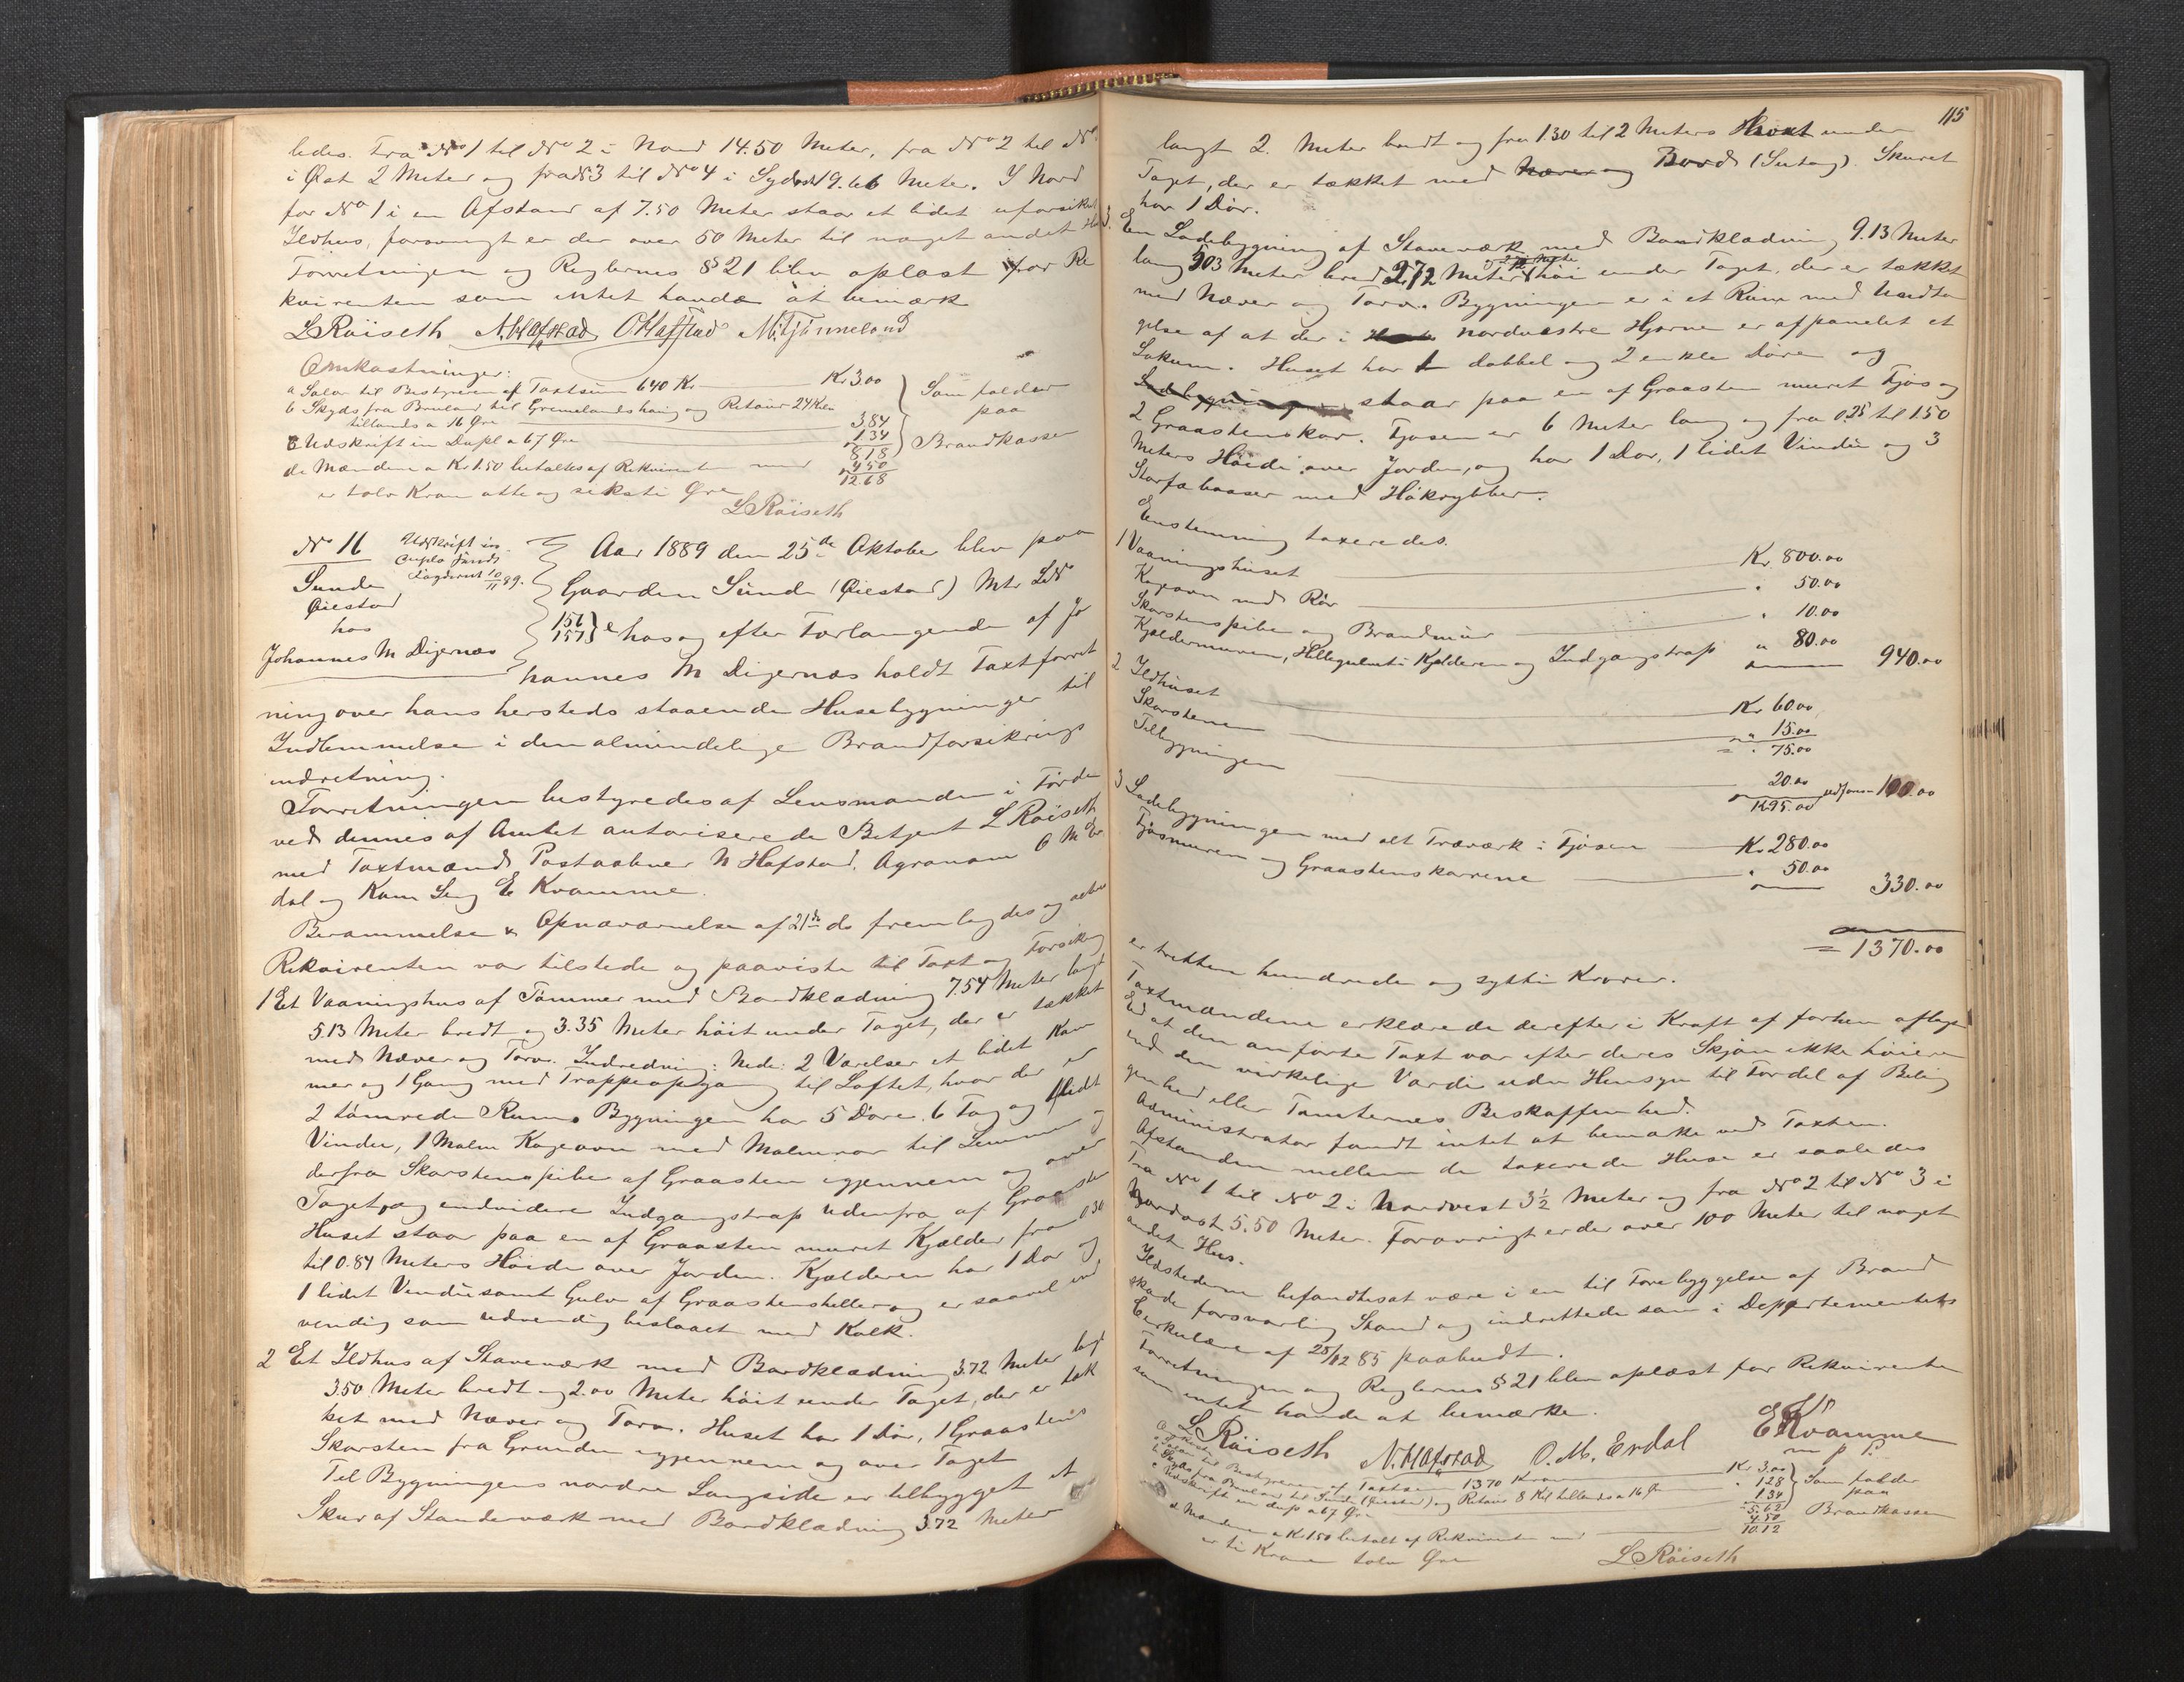 ledes. Fra No 1 til No 2 i Nord 14.50 Meter, fra No 2 til No
i Øst 2 Meter og fra No 3 til No 4 i Sydost 19.66 Meter. I Nord
for No 1 i en Afstand af 7.50 Meter staar et lidet uforsikret
Ildhus, forøvrigt er der over 50 Meter til noget andet Hus.
Forretningen og Reglernes § 21 blev oplæst for Re
kvirenten som intet havde at bemærke
L Röiseth N. Hafstad O Hafstad M. Tjönneland
Omkostninger:
a Salær til Bestyreren af Taxtsum 640 Kr Kr 3.00
b Skyds fra Bruland til Gremelandshaug og Retour 24 Klm
tillands a 16 Øre 3.84
c Udskrift in Dupl a 67 Øre 1.34
8.18
Som falder
paa
Brandkassen
de Mændene a Kr 1.50 betaltes af Rekvirenten med 4.50
12.68
er tolv Kroner otte og seksti Øre
L Röiseth
No 16
Sunde
Øiestad
hos
Johannes M Digernæs
Udskrift in
duplo sendt
Fogderiet 10/11 89.
Aar 1889 den 25de Oktober blev paa
Gaarden Sunde (Øiestad) Mtr LNo
156
157 hos og efter Forlangende af Jo
hannes M Digernæs holdt Taxtforret
ning over hans hersteds staaende Husebygninger til
Indlemmelse i den almindelige Brandforsikrings
indretning.
Forretningen bestyredes af Lensmanden i Førde
ved dennes af Amtet autoriserede Betjent L Röiseth
med Taxtmænd Postaabner N Hafstad, Agronom O M Er
dal og Kom Seng E Kvamme.
Berammelse & Opnævnelse af 21de ds fremlagdes og
Rekvirenten var tilstede og paaviste til Taxt og Forsikring
1 Et Vaaningshus af Tømmer med Bordklædning 7.54 Meter langt
5.13 Meter bredt og 3.35 Meter höit under Taget, der er tækket
med Næver og Torv. Indredning: Nede: 2 Værelser et lidet Kam
mer og 1 Gang med Trappeopgang til Loftet, hvor der er
2 tømrede Rum. Bygningen har 5 Døre. 6 Fag og 1 lidet
Vindu, 1 Malm Kogeovn med Malmrør til Lemmen og
derfra Skorstenspibe af Graasten igjennem og over
Taget, og endvidere Indgangstrap udenfra af Graasten
Huset staar paa en af Graasten muret Kjælder fra 0.30
til 0.84 Meters Höide over Jorden. Kjælderen har 1 Dør og
1 lidet Vindu samt Gulv af Graastensheller og er saavel ind
vendig som udvendig beslaaet med Kalk.
2 Et Ildhus af Staveværk med Bordklædning 3.72 Meter langt
3.50 Meter bredt og 2.00 Meter höit under Taget, der er tæk
ket med Næver og Torv. Huset har 1 Dør, 1 Graastens
Skorsten fra Grunden igjennem og over Taget
Til Bygningens nordre Langside er tilbygget et
Skur af Standerværk med Bordklædning 3.72 Meter
115
langt 2. Meter bredt og fra 1.30 til 2 Meters Høit under
Taget, der er tækket med Næver og Bord (Sutag). Skuret
har 1 Dør.
3 En Ladebygning af Staveværk med Bordklædning 9.13 Meter
lang 5.03 Meter bred 2.72 Meter høi under Taget, der er tækket
med Næver og Torv. Bygningen er i et Rum med Undta
gelse af at der i nordvestre Hjørne er afpanelet et
Lokum. Huset har 1 dobbel og 2 enkle Døre og
staar paa en af Graasten muret Fjøs og
2 Graastenskar. Fjøsen er 6 Meter lang og fra 0.25 til 1.50
Meters Höide over Jorden, og har 1 Dør, 1 lidet Vindu og 3
Storfæbaaser med Høkrybber.
Eenstemmig taxeredes.
1 Vaaningshuset Kr. 800.00
Kogeovn med Rør " 50.00
Skorstenspiben og Brandmur " 10.00
Kjældermuren, Hellegulvet i Kjælderen og Indgangstrap " 80.00
940.00
2 Ildhuset Kr 60.00
Skorstenen " 15.00
= " 75.00
Tilbygningen 20.00
Kr 95.00 udjævn 100.00
3 Ladebygningen med alt Træværk i Fjøsen Kr 280.00
Fjøsmuren og Graastenskarrene " 50.00
330.00
= 1370.00
er tretten hundrede og sytti Kroner.
Taxtmændene erklærede derefter i Kraft af forhen aflagt
Ed at den anførte Taxt var efter deres Skjøn ikke høiere
end den virkelige Værdi uden Hensyn til Fordel af Belig
genhed eller Tomternes Beskaffenhed.
Administrator fandt intet at bemærke ved Taxten.
Afstanden mellem de taxerede Huse er saaledes
Fra No 1 til No 2 i Nordvest 3 1/2 Meter og fra No 2 til No 3 i
Nordost 5.50 Meter. Forøvrigt er der over 100 Meter til noget
andet Hus.
Ildstederne befandtes at være i en til Forebyggelse af Brand
skade forsvarlig Stand og indrettede som i Departementets
Cirkulære af 25/12 85 paabudt.
Forretningen og Reglernes § 21 blev oplæst for Rekvirenten
som intet havde at bemærke.
L Röiseth N. Hafstad O. M. Erdal E Kvamme
m p P.
a Salær til Bestyreren af Taxtsum 1370 Kroner Kr 3.00
b Skyds fra Bruland til Sunde (Øiestad) og Retour 8 Kil tillands a 16 Ø " 1.28
c Udskrift in dup a 67 Øre 1.34
5.62
Som falder
paa
Brandkassen
d Mændene a Kr 1.50 betalt af Rekvirenten med 4.50
10.12
er ti Kroner tolv Øre
L Röiseth